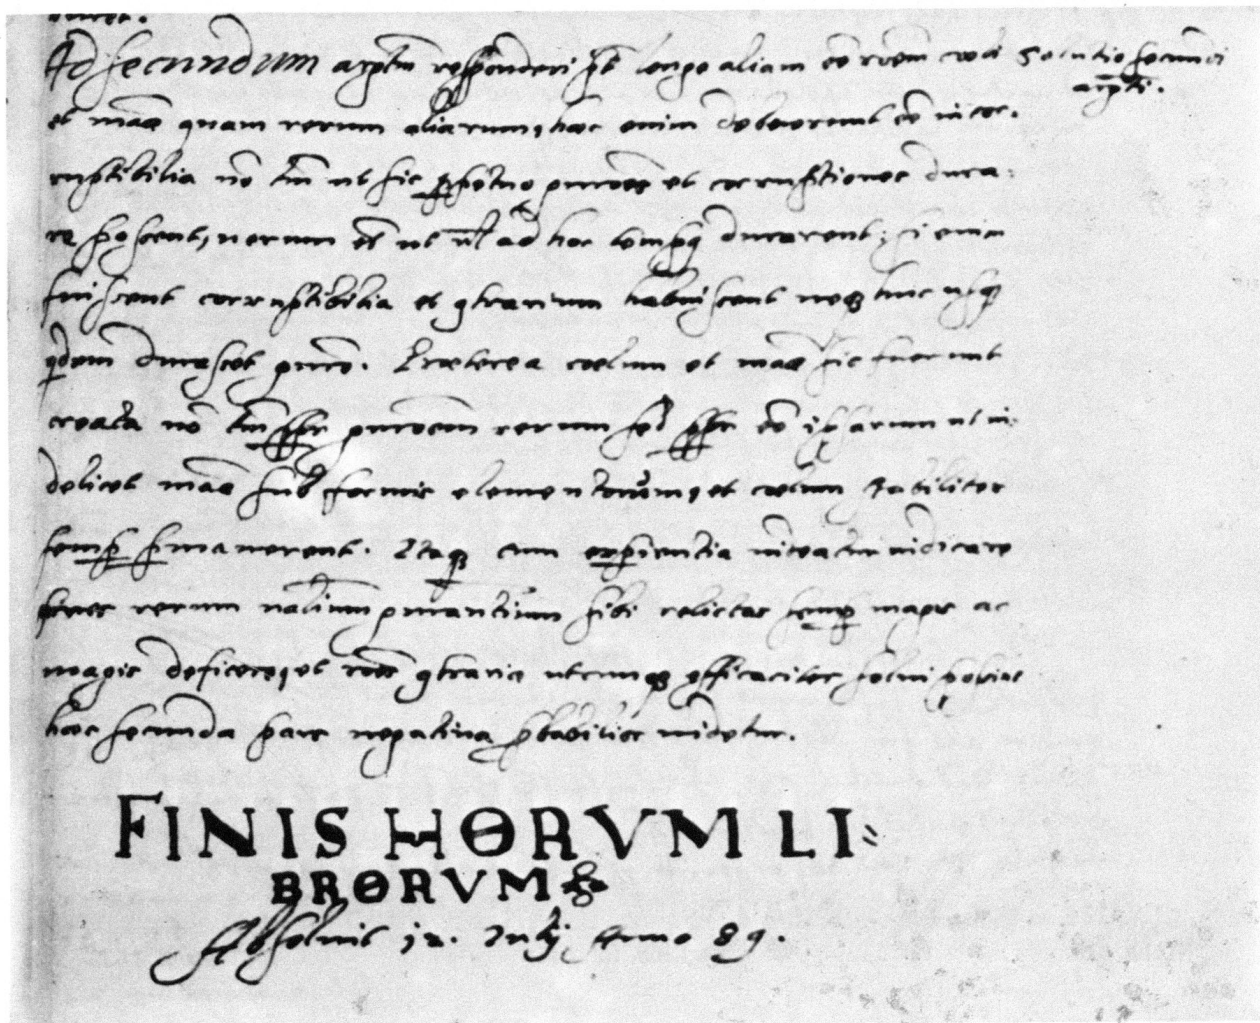 Ad secundum argtm responderi pt longe aliam ee rōem coeli
Solutio secundi
argti.
et māae quam rerum aliarum, haec enim debuerunt ee incor-
ruptibilia nō tm ut sic perpetuo gnrōes et corruptiones dura-
re possent, uerum et ut ad hoc tempus durarent; si enim
fuissent corruptibilia et contrarium habuissent neque huc usque
quidem durasset gnrō. Praeterea coelum et māa sic fuerunt
creata nō tm propter gnrōem rerum sed propter eē ipsarum ut ui-
delicet māa sub formis elementorum, et coelum stabiliter
semper permanerent. Itaque cum experientia uideatur iudicare
rerum nālium gnrantium sibi relictas semper magis ac
magis deficere, et rōes contrariae utcumque efficaciter solui possint
haec secunda pars negatiua probabilior uidetur.
FINIS HORVM LI=
BRORVM
Absoluit 12. Iulij Anno 89.